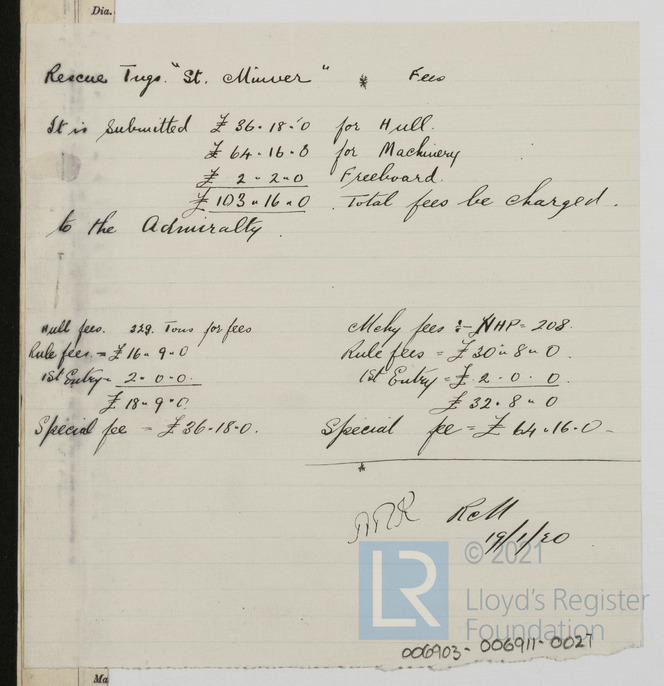 Dia.
Rescue Tugs. "St. Minver" * Fees
It is submitted £ 36-18-0 for Hull.
£ 64-16-0 for Machinery
£ 2-2-0 Freeboard.
£ 103-16-0 Total fees be charged.
to the Admiralty
Hull fees. 329. Tons for fees
Rule fees. = £ 16-9-0
1st Entry = 2-0-0.
£ 18-9-0
Special fee = £ 36-18-0.
Mchy fees :- NHP = 208.
Rule fees = £ 30-8-0.
1st Entry = £ 2-0-0.
£ 32-8-0
Special fee = £ 64-16-0-
*
RcM
19/1/20
LR
© 2021
Lloyd's Register
Foundation
006903-006911-0027
Ma